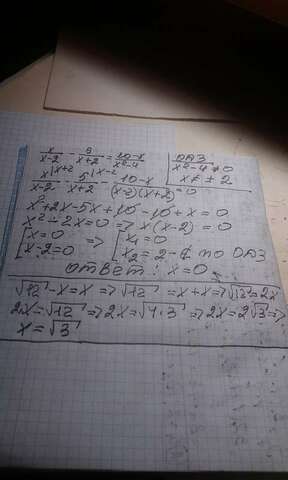 x/(x-2) - 5/(x+2) = (10-x)/(x²-4) | ОДЗ
x²-4 ≠ 0
x ≠ ± 2
x|x+2/(x-2) - 5|x-2/(x+2) - (10-x)/((x-2)(x+2)) = 0
x²+2x-5x+10-10+x=0
x²-2x=0 => x(x-2)=0
[x=0 => [x₁=0
[x-2=0 [x₂=2-∉ по ОДЗ
ответ: x=0
√12-x=x => √12=x+x => √12=2x
2x=√12 => 2x=√4·3 => 2x=2√3 =>
x=√3